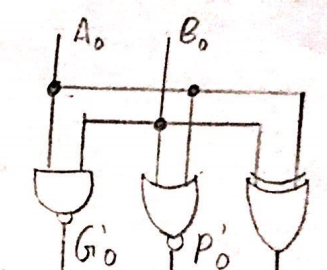 A₀ B₀
G'₀ P'₀